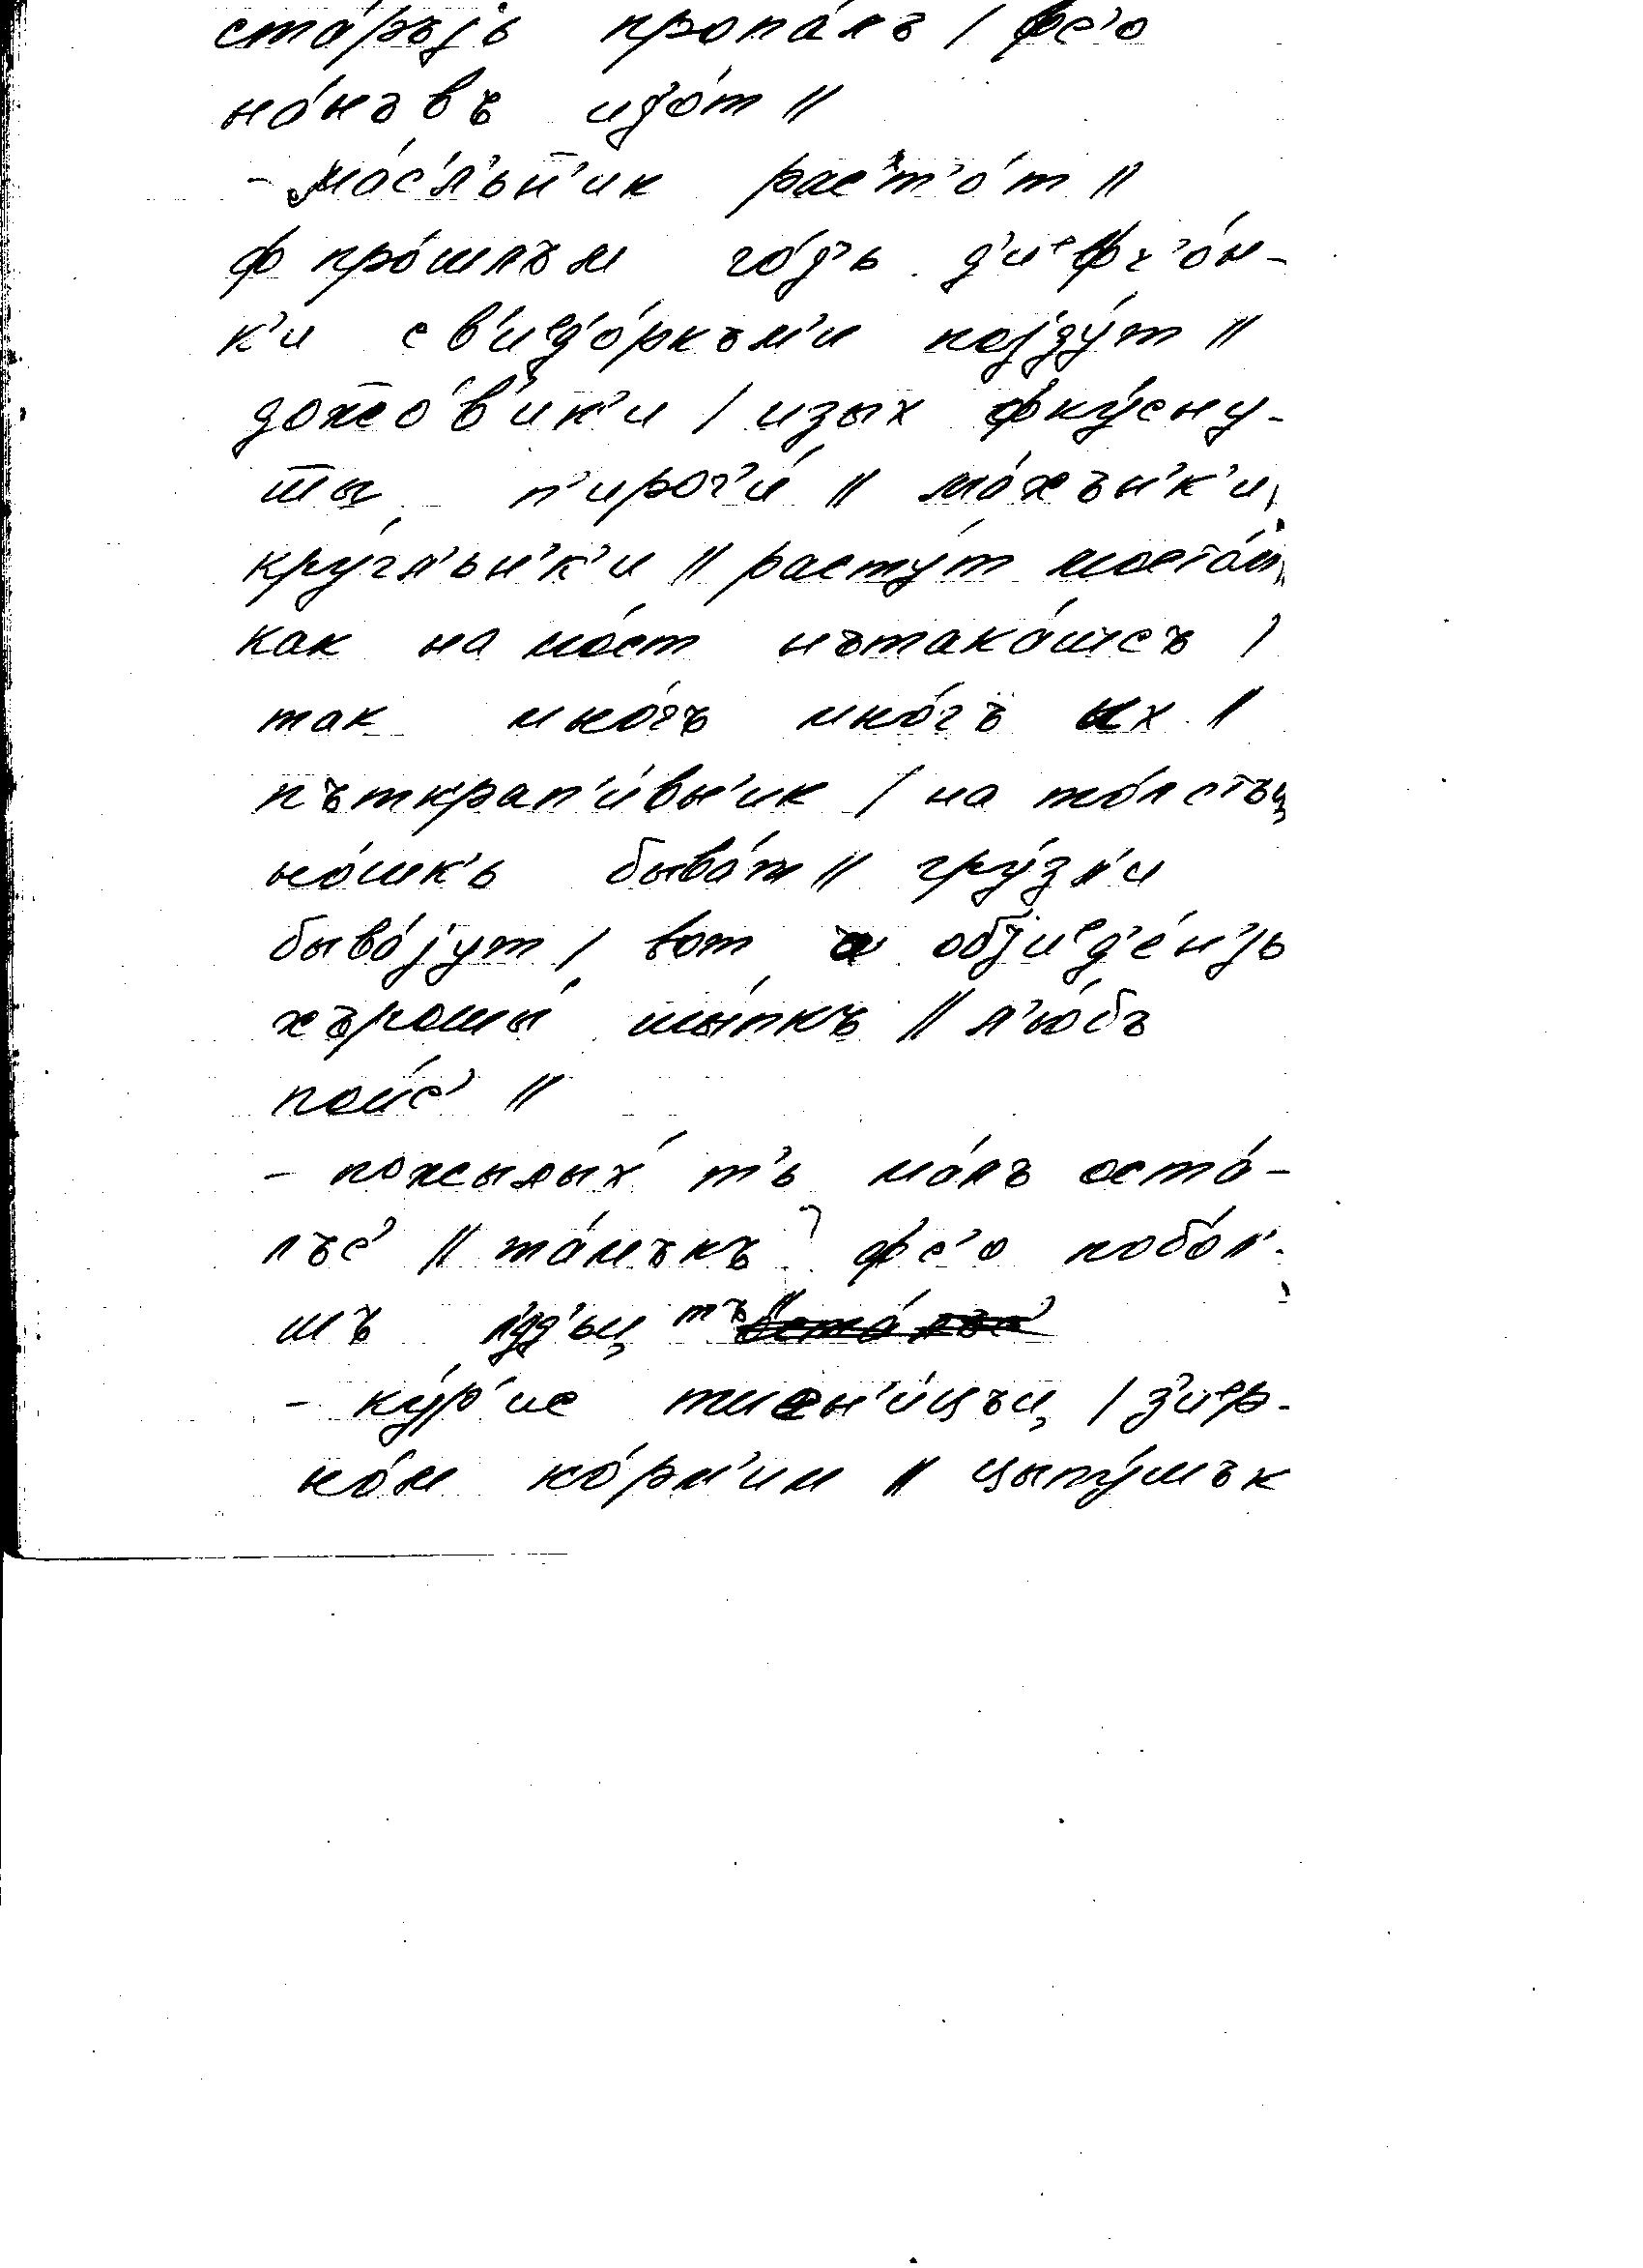 ста́ръjь пропа́лъ / фс'о
но́въвъ ид'о́т //
- ма́с'л'ьн'ик рас'т'о́т //
ф про́шлъм го́д'ь д'иᵉфч'о́н-
к'и с в'иᵉд'о́ркъм'и поjду́т //
дожо́в'ик'и / изых фку́сну-
ты п'ирог'и́ // мо́хън'к'и,
кру́гл'ьн'к'и // расту́т моста́м,
как на мо́ст нътака́шсъ /
так мно́гъ мно́гъ их //
пъткрап'и́вн'ик / на то́лстъи̯
но́шк'ь быва́т // гру́зл'и
быва́jут / вот а обjиᵉд'е́н'jь
хърошы́ шы́пкъ // л'ю́бъ
пои́с' //
- пожылых т'ь ма́лъ оста́-
лъс' // та́мъкъ фс'о побо́л'-
шъ л'уд'ьи̯ тъ //
- ку́р'ис пшен'и́цъи̯ / з'иᵉр-
но́м ко́рм'им // цыпу́шък